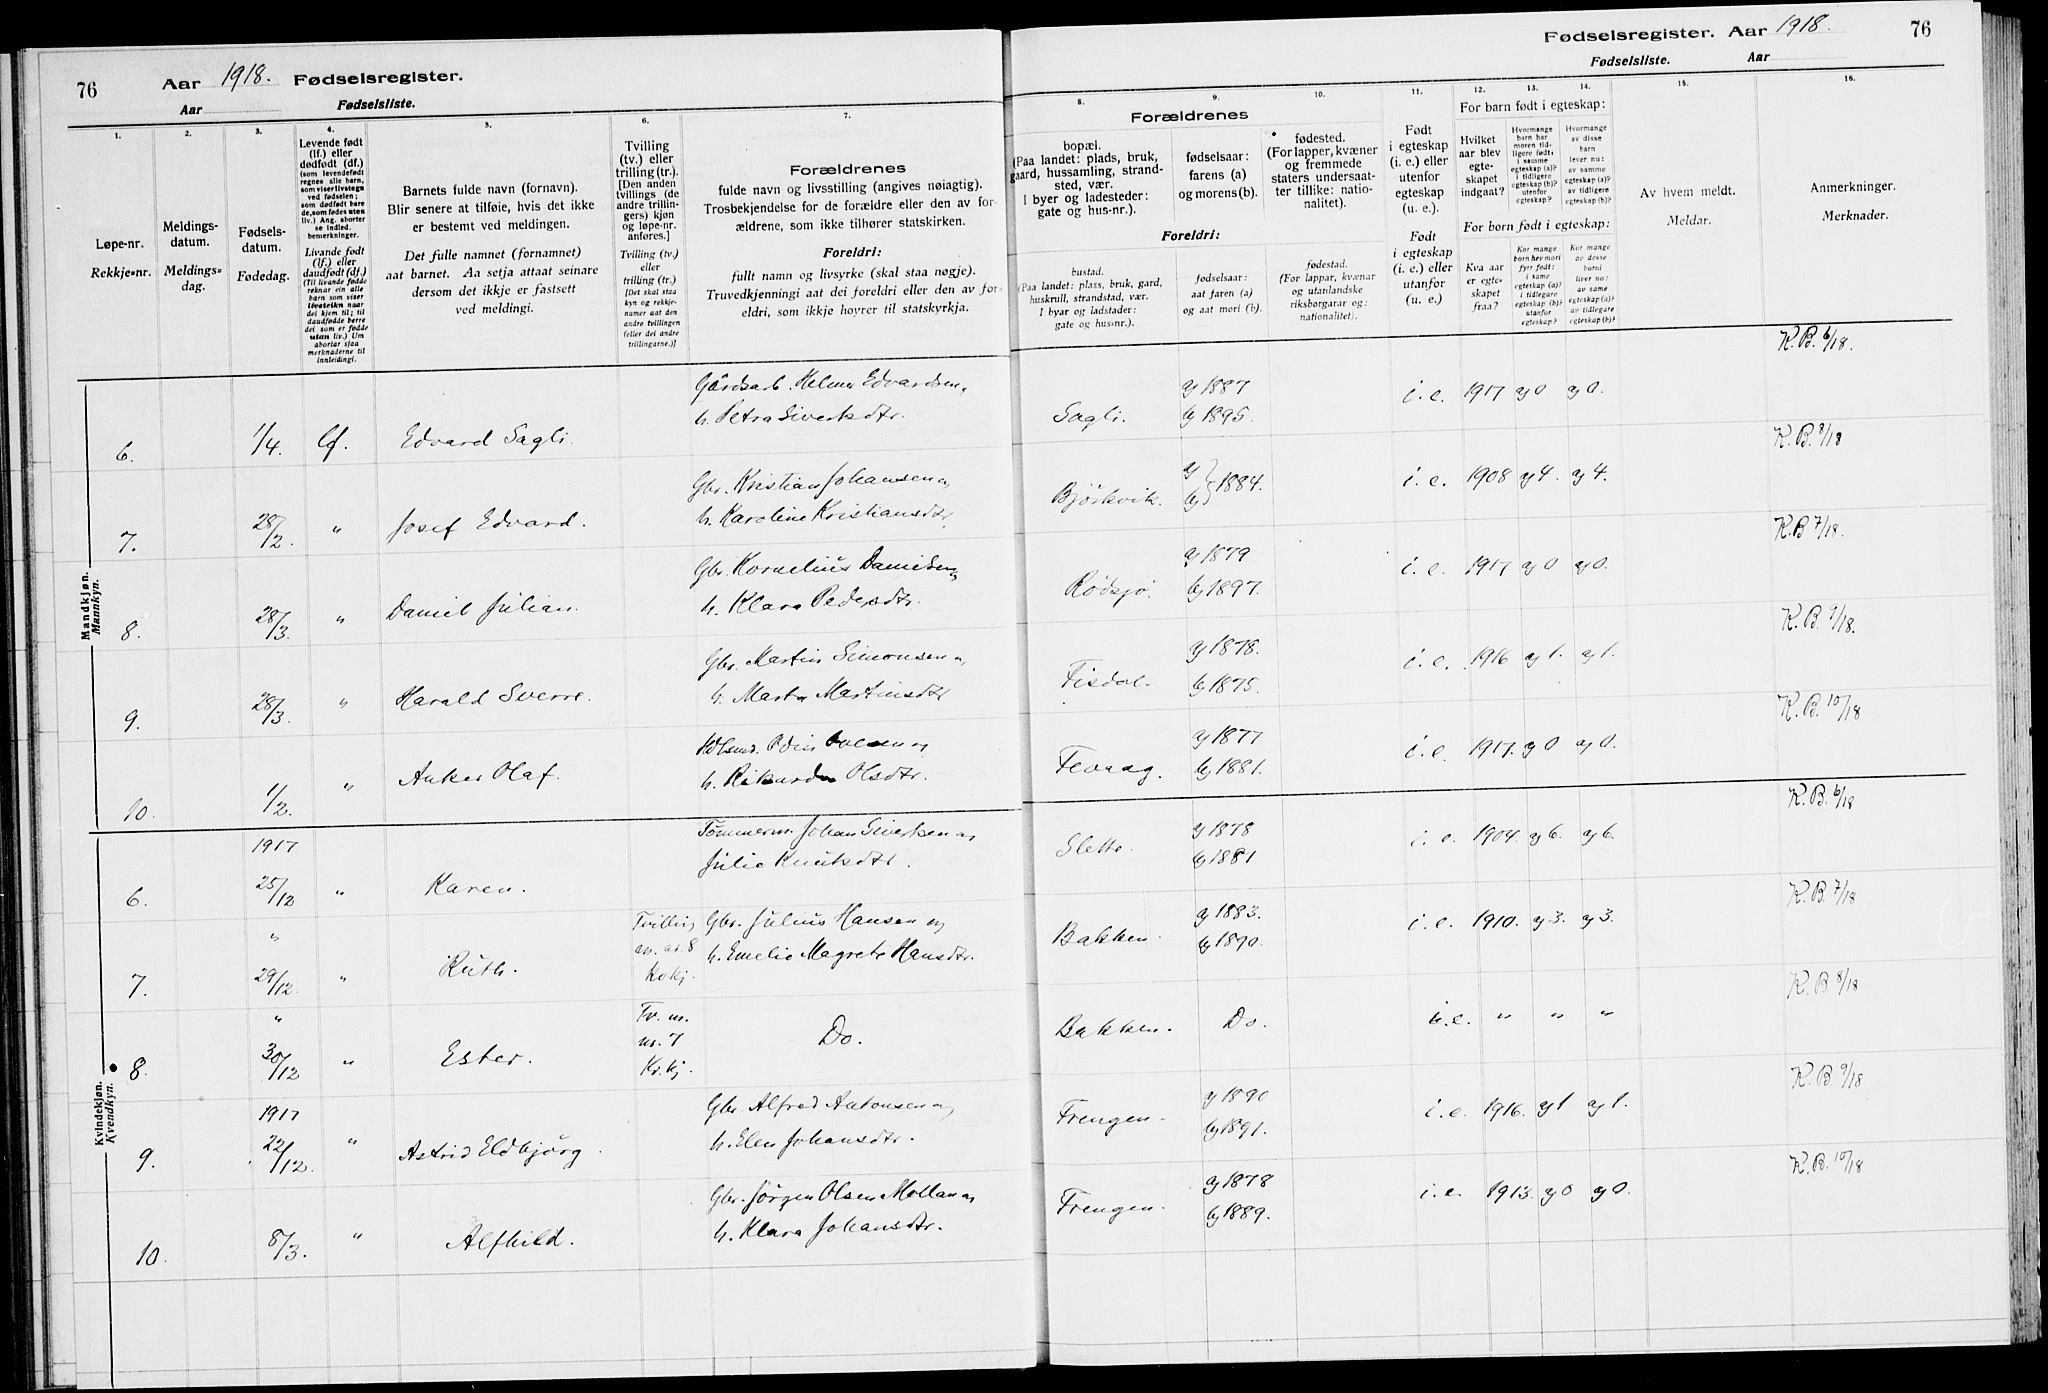 76
Aar 1918. Fødselsregister.
Aar
Fødselsliste.
1.
Løpe-nr.
Rekkje-nr.
2.
Meldings-
datum.
Meldings-
dag.
3.
Fødsels-
datum.
Fødedag.
4.
Levende født
(lf.) eller
dødfødt (df.)
(som levendefødt
regnes alle barn,
som viser livstegn
ved fødselen;
som dødfødt bare
de, som fødes uten
liv.) Ang. aborter
se indled.
bemerkninger.
Livande født
(lf.) eller
daudfødt (df.)
(Til livande fødde
reknar ein alle
barn som viser
livsteikn naar
dei kjem til; til
daudfødde berre
dei som er fødde
utan liv.) Um
abortar sjaa
merknaderne til
innleidingi.
5.
Barnets fulde navn (fornavn).
Blir senere at tilføie, hvis det ikke
er bestemt ved meldingen.
Det fulle namnet (fornamnet)
aat barnet. Aa setja attaat seinare
dersom det ikkje er fastsett
ved meldingi.
6.
Tvilling
(tv.) eller
trilling (tr.).
[Den anden
tvillings (de
andre trillin-
gers) kjøn
og løpe-nr.
anføres.]
Tvilling (tv.)
eller
trilling (tr.)
[Det skal staa
kyn og rekkje-
numer aat den
andre tvillingen
(eller dei andre
trillingarne.)]
7.
Forældrenes
fulde navn og livsstilling (angives nøiagtig).
Trosbekjendelse for de forældre eller den av for-
ældrene, som ikke tilhører statskirken.
Foreldri:
fullt namn og livsyrke (skal staa nøgje).
Truvedkjenningi aat dei foreldri eller den av for-
eldri, som ikkje høyrer til statskyrkja.
Mandkjøn.
Mannkyn.
6. 1/4. lf. Edvard Sagli. Gårdsarb. Helmer Edvardsen og
h. Petra Sivertsdtr.
7. 28/2. " Josef Edvard. Gbr. Kristian Johansen og
h. Karoline Kristiansdtr.
8. 28/3. " Daniel Julian. Gbr. Kornelius Danielsen og
h. Klara Pedersdtr.
9. 28/3. " Harald Sverre. Gbr. Martin Simonsen og
h. Marta Martinsdtr
10. 1/2. " Anker Olaf. Odin og
h. Rikarda Olsdtr.
Kvindekjøn.
Kvendkyn.
6. 1917 25/12 " Karen. Tømmerm. Johan Sivertsen og
Julie Knutsdtr.
7. " 29/12. " Ruth. Tvilling m. nr. 8 Kvkj. Gbr. Julius Hansen og
h. Emelie Magrete Hansdtr.
8. " 30/12 " Ester. Tv. m. nr. 7 Kv.kj. Do.
9. 1917 22/12. " Astrid Eldbjørg. Gbr. Alfred Antonsen og
h. Elen Johansdtr.
10. 8/3. " Alfhild. Gbr. Jørgen Olsen Mollan og
h. Klara Johansdtr.
Fødselsregister. Aar 1918. 76
Fødselsliste. Aar
8.
Forældrenes
bopæl.
(Paa landet: plads, bruk,
gaard, hussamling, strand-
sted, vær.
I byer og ladesteder:
gate og hus-nr.).
Foreldri:
bustad.
(Paa landet: plass, bruk, gard,
huskrull, strandstad, vær.
I byar og ladstader:
gate og husnr.).
9.
fødselsaar:
farens (a)
og morens (b).
fødselsaar:
aat faren (a)
og aat mori (b).
10.
fødested.
(For lapper, kvæner
og fremmede
staters undersaat-
ter tillike: natio-
nalitet).
fødestad.
(For lappar, kvænar
og utanlandske
riksborgarar og:
nationalitet).
11.
Født
i egteskap
(i. e.) eller
utenfor
egteskap
(u. e.).
Født
i egteskap
(i. e.) eller
utanfor
(u. e.).
For barn født i egteskap:
12.
Hvilket
aar blev
egte-
skapet
indgaat?
13.
Hvormange
barn har
moren tid-
ligere født:
i samme
egteskap (a)?
i tidligere
egteskap (b)?
utenfor
egteskap?
14.
Hvormange
av disse
barn
lever nu:
av samme
egteskap (a)?
av tidligere
egteskap (b)?
For born født i egteskap:
Kva aar
er egte-
skapet
fraa?
Kor mange
born hev mori
fyrr født:
i same
egteskap (a)?
i tidlegare
egteskap (b)?
utanfor
egteskap?
Kor mange
av desse
borni
liver no:
av same
egteskap (a)?
av tidlegare
egteskap (b)?
15.
Av hvem meldt.
Meldar.
16.
Anmerkninger.
Merknader.
Sagli. a) 1887 b) 1895. i. e. 1917 a) 0 a) 0. K. B. 6/18.
Bjørkvik. a) b) 1884. i. e. 1908 a) 4. a) 4. K. B. 8/18
Rødsjø. a) 1879 b) 1897. i. e. 1917 a) 0 a) 0. K. B 7/18.
Fisdal. a) 1878. b) 1875. i. e. 1916 a) 1. a) 1. K. B. 9/18.
Fevaag. a) 1877 b) 1881. i. e. 1917. a) 0 a) 0. K. B. 10/18
Slette. a) 1878 b) 1881 i. e. 1904. a) 6. a) 6. K. B. 6/18
Bakken. a) 1883. b) 1890. i. e. 1910. a) 3. a) 3. K. B. 7/18
Bakken. Do. i. e. " " " K. B 8/18
Frengen. a) 1890 b) 1891. i. e. 1916. a) 1 a) 1. K. B. 9/18
Frengen. a) 1878 b) 1889. i. e. 1913. a) 0 a) 0. K. B. 10/18